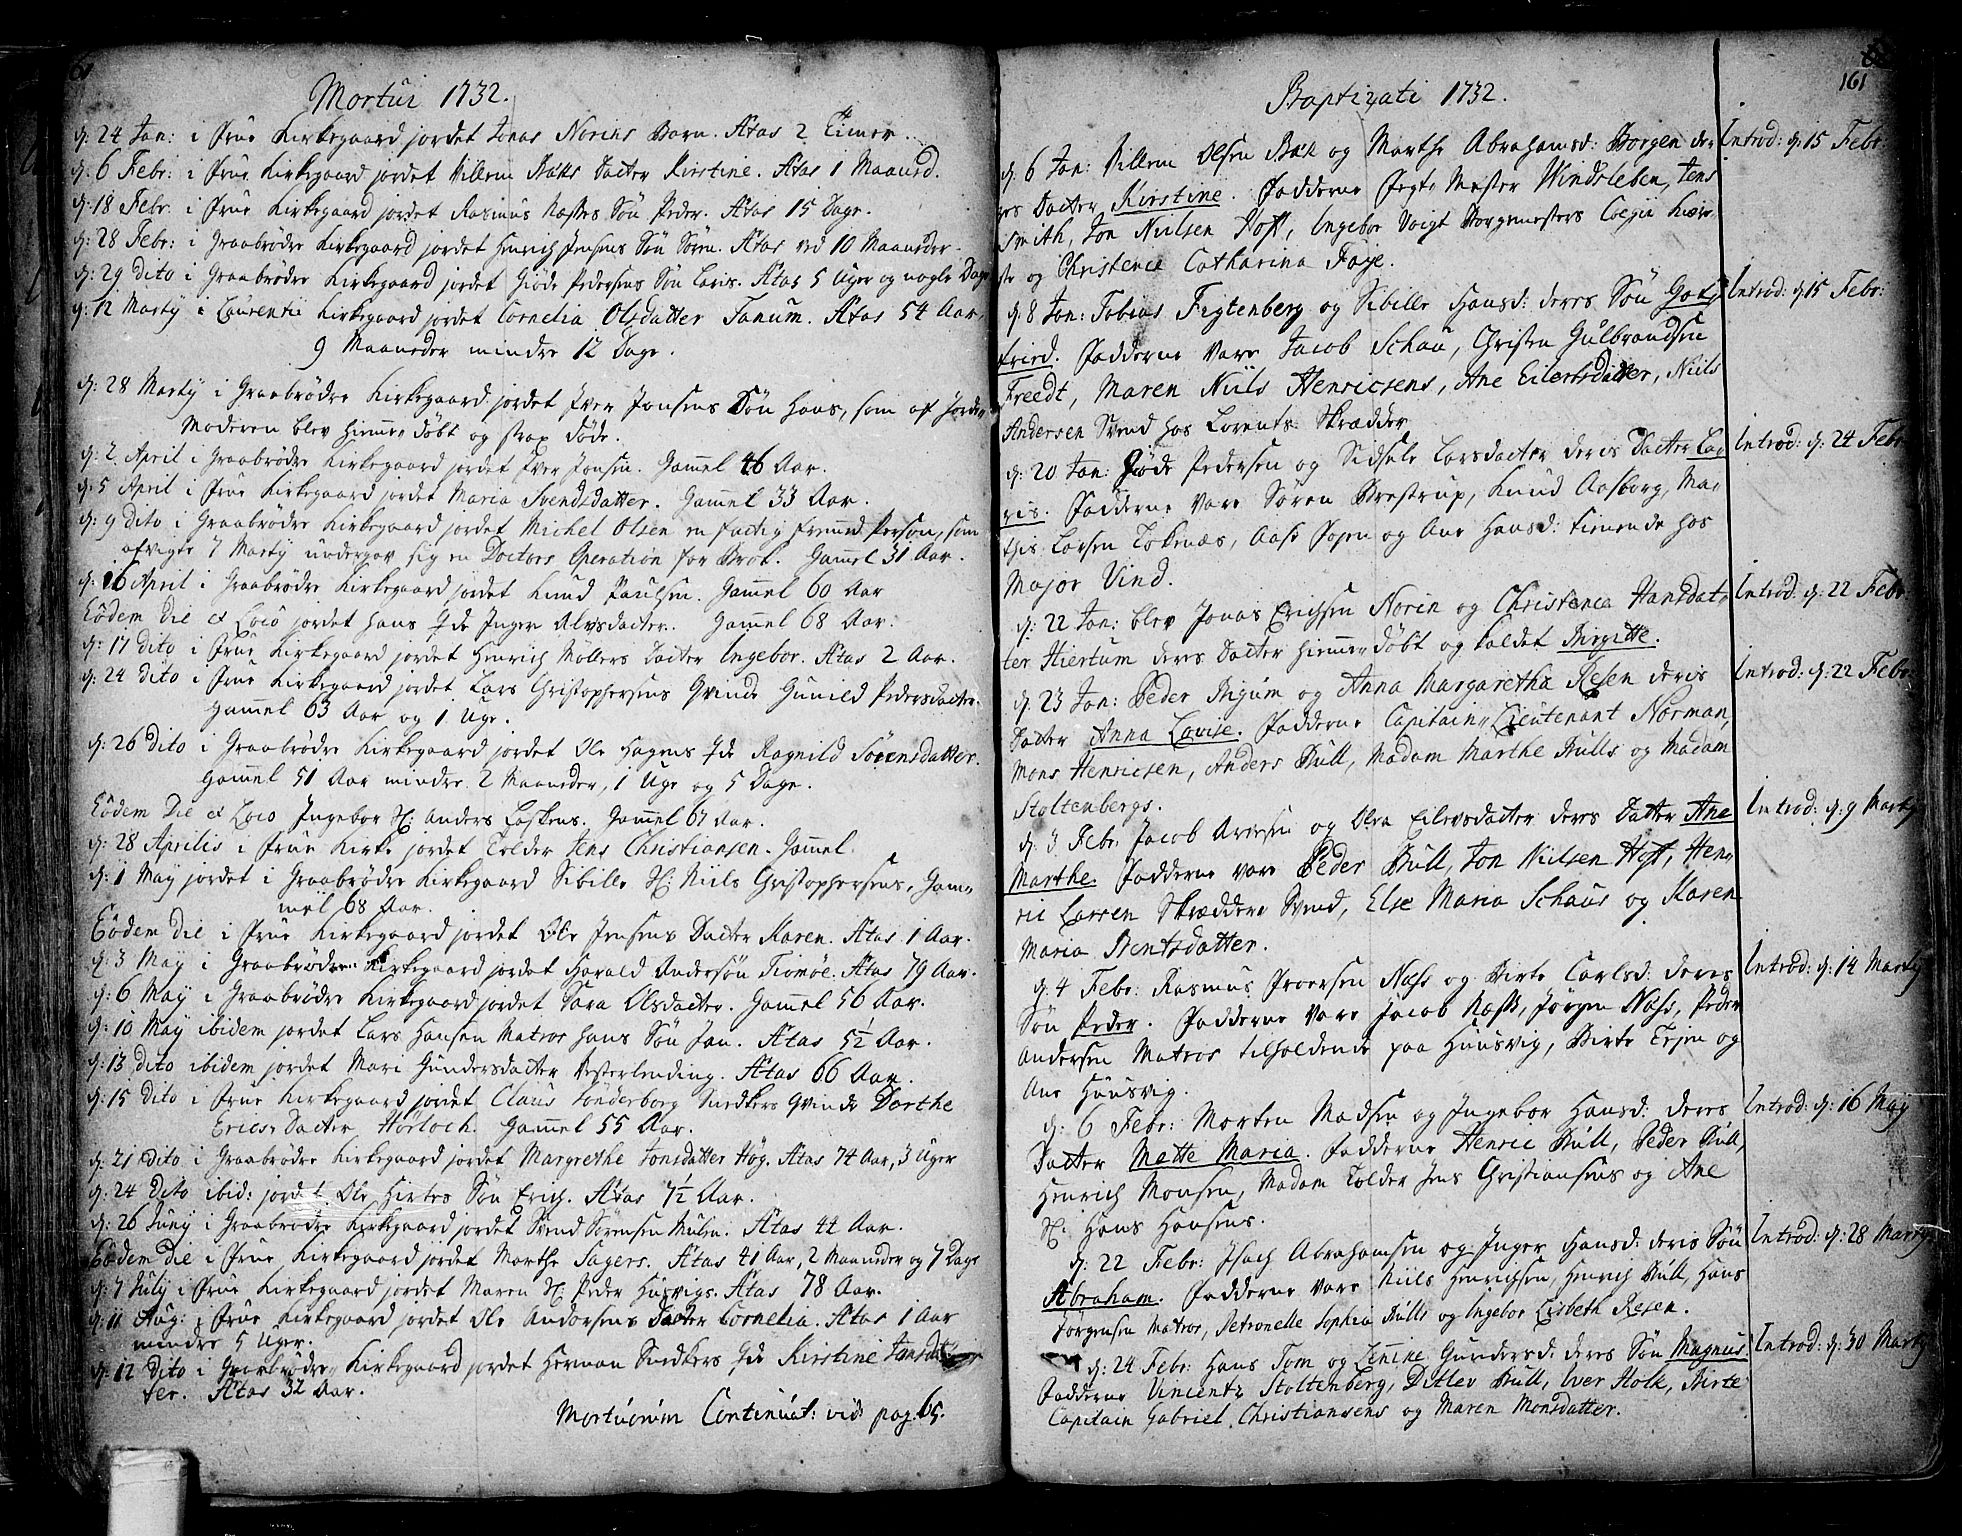 Mortui 1732.
d: 24 Jan: i Frue Kirkegaard jordet Jonas Norins Barn. Ætas 2 Timer.
d: 6 Febr: i Frue Kirkegaard jordet Villem Bæks Datter Kirstine. Ætas 1 Maaned.
d: 18 Febr: i Frue Kirkegaard jordet Rasmus Næsses Søn Peder. Ætas 15 Dage.
d: 28 Febr: i Graabrødre Kirkegaard jordet Henrich Jensens Søn Søren. Ætas ved 10 Maaneder.
d: 29 dito i Graabrødre Kirkegaard jordet Giøde Pedersens Søn Laris. Ætas 5 Uger og nogle Dage
d: 12 Martij i Laurentii Kirkegaard jordet Cornelia Olsdatter Fanum. Ætas 54 Aar,
9 Maaneder mindre 12 Dage.
d: 28 Martij i Graabrødre Kirkegaard jordet Iver Jonsens Søn Hans, som af Jorde-
moderen blev hiemme døbt og strax døde.
d: 2 April i Graabrødre Kirkegaard jordet Iver Jonsen. Gammel 46 Aar.
d: 5 April i Frue Kirkegaard jordet Maria Svendsdatter. Gammel 33 Aar.
d: 9 dito i Graabrødre Kirkegaard jordet Michel Olsen en fattig fremmed Person, som
afvigte 7 Martij undergav sig en Doctors Operation for Brok. Gammel 31 Aar.
d: 16 April i Graabrødre Kirkegaard jordet Knud Paulsen. Gammel 60 Aar
Eodem Die et Loco jordet Hans Ende Inger Alvsdatter. Gammel 68 Aar.
d: 17 dito i Frue Kirkegaard jordet Henrich Møllers Datter Ingebor. Ætas 2 Aar.
d: 24 dito i Frue Kirkegaard jordet Lars Christophersens Qvinde Gunild Pedersdatter.
Gammel 63 Aar og 1 Uge.
d: 26 dito i Graabrødre Kirkegaard jordet Ole Hagens Ragnild Sørensdatter.
Gammel 51 Aar mindre 2 Maaneder, 1 Uge og 5 Dage.
Eodem Die et Loco Ingebor Sl: Anders Laskens. Gammel 67 Aar.
d: 28 Aprilis i Frue Kirke jordet Tolder Jens Christiansen. Gammel
d: 1 May jordet i Graabrødre Kirkegaard Sibille Sl: Niels Christophersens, Gam-
mel 68 Aar.
Eodem Die i Frue Kirkegaard jordet Ole Jensens Datter Karen. Ætas 1 Aar.
d: 3 May i Graabrødre Kirkegaard jordet Harald Andersøn Tiomøe. Ætas 79 Aar.
d: 6 May i Graabrødre Kirkegaard jordet Sara Olsdatter. Gammel 56 Aar.
d: 10 May ibidem jordet Lars Hansen Matros hans Søn Jan. Ætas 5½ Aar.
d: 13 dito ibidem jordet Mari Gundersdatter Vesterlending. Ætas 66 Aar.
d: 15 dito i Frue Kirkegaard jordet Claus Sønderborg Snedkers Qvinde Dorthe
Erics-Datter Hørloch. Gammel 55 Aar.
d: 21 dito i Graabrødre Kirkegaard jordet Margrethe Jonsdatter Høg. Ætas 74 Aar, 3 Uger
d: 24 dito ibid: jordet Ole Hirtes Søn Erich. Ætas 7½ Aar.
d: 26 Juny i Graabrødre Kirkegaard jordet Svend Sørensen Mulen. Ætas 44 Aar.
Eodem Die i Frue Kirkegaard jordet Marthe Sagers. Ætas 41 Aar, 2 Maaneder og 7 Dage
d: 7 July i Frue Kirkegaard jordet Maren Sl: Peder Husvigs. Ætas 78 Aar.
d: 11 Aug: i Frue Kirkegaard jordet Ole Andersens Datter Cornelia. Ætas 1 Aar
mindre 5 Uger.
d: 12 dito i Graabrødre Kirkegaard jordet Herman Snedkers Kirstine Jansdat-
ter. Ætas 32 Aar.
Mortuorum Continuat: vid: pag: 65.
161
Baptizati 1732.
d. 6 Jan: Villem Olsen Bæk og Marthe Abrahamsd: Borgen de-
res Datter Kirstine. Fadderne Fegte Mester Windsleben, Jens
Smith, Jon Nielsen Hoff, Ingebor Voigt Borgemesters Coegii Kiære-
ste og Christence Catharina Foje.
Introd: d: 15 Febr:
d. 8 Jan: Tobias Figtenberg og Sibille Hansd: deres Søn Got-
fried. Fadderne vare Jacob Schau, Christen Gulbrandsen
Freedt, Maren Niels Henricsens, Ane Eilertsdatter, Niels
Andersen Svend hos Lorents Skrædder
Introd: d: 15 Febr:
d: 20 Jan: Giøde Pedersen og Sidsele Larsdatter deres Datter La-
ris. Fadderne vare Søren Brestrup, Knud Aasborg, Ma-
this Larsen Tokenæs, Aase Pojen og Ane Hansd: tienende hos
Major Vind.
Introd: d: 24 Febr
d: 22 Jan: blev Jonas Erichsen Norin og Christence Hansdat-
ter Hiertum deres Datter hiemme døbt og kaldet Birgitte.
Introd: d: 22 Febr.
d. 23 Jan: Peder Bigum og Anna Margaretha Resen deres
Datter Anna Louise. Fadderne Capitain-Lieutenant Norman,
Mons Henricsen, Anders Bull, Madam Marthe Bulls og Madam
Stoltenbergs.
Introd: d: 22 Febr
d. 3 Febr: Jacob Aresen og Olea Eilersdatter deres Datter Ane
Marthe. Fadderne vare Peder Bull, Jon Nielsen Hoff, Hen-
ric Larsen Skræddere Svend, Else Maria Schaus og Karen
Maria Bentsdatter.
Introd: d: 9 Martij
d. 4 Febr: Rasmus Iversen Næss og Birte Carlsd: deres
Søn Peder. Fadderne vare Jacob Næss, Jørgen Næss, Peder
Andersen Matros tilholdende paa Huusvig, Birte Tejen og
Ane Huusvig.
Introd: d: 14 Martij
d: 6 Febr: Morten Madsen og Ingebor Hansd: deres
Datter Mette Maria. Fadderne Henric Bull, Peder Bull,
Henrich Monsen, Madam Tolder Jens Christiansens og Ane
Sl: Hans Hansens.
Introd: d: 16 May
d: 22 Febr: Isach Abrahamsen og Inger Hansd: deres Søn
Abraham. Fadderne vare Niels Henrichsen, Henrich Bull, Hans
Jørgensen Matros, Petronelle Sophia Bulls og Ingebor Lisbeth Resen.
Introd: d: 28 Martij
d: 24 Febr: Hans Tom og Lenike Gundersd: deres Søn Magnus
Fadderne Vincentz Stoltenberg, Ditlev Bull, Iver Holk, Birte
Capitain Gabriel Christiansens og Maren Monsdatter.
Introd: d: 30 Martij